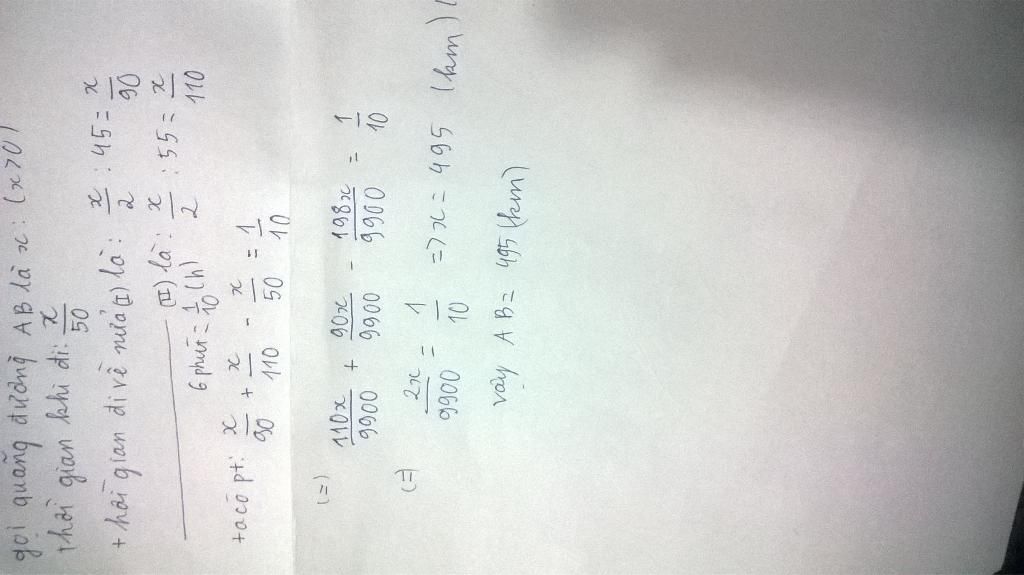 gọi quãng đường AB là x: (x>0)
thời gian khi đi: x/50
+ hời gian đi về nửa (I) là: x/2 : 45 = x/90
(II) là: x/2 : 55 = x/110
6 phút = 1/10 (h)
ta có pt: x/90 + x/110 - x/50 = 1/10
(=) 110x/9900 + 90x/9900 - 198x/9900 = 1/10
(=) 2x/9900 = 1/10 => x = 495 (km)
vậy AB = 495 (km)